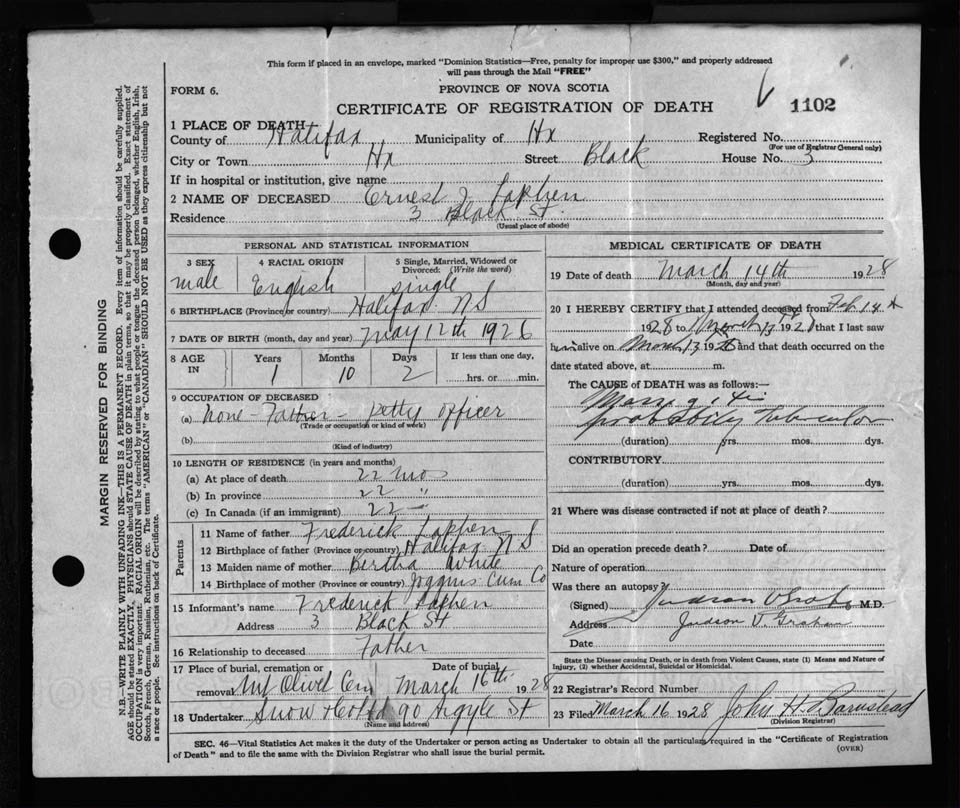 This form if placed in an envelope, marked "Dominion Statistics—Free, penalty for improper use $300," and properly addressed
will pass through the Mail "FREE"
FORM 6.
PROVINCE OF NOVA SCOTIA
CERTIFICATE OF REGISTRATION OF DEATH
1102
1 PLACE OF DEATH
County of Halifax Municipality of Hx Registered No.
(For use of Registrar General only)
City or Town Hx Street Black House No. 3
If in hospital or institution, give name
2 NAME OF DECEASED Ernest J Laphen
Residence 3 Black St.
(Usual place of abode)
PERSONAL AND STATISTICAL INFORMATION
3 SEX 4 RACIAL ORIGIN 5 Single, Married, Widowed or Divorced: (Write the word)
male English single
6 BIRTHPLACE (Province or country) Halifax N S
7 DATE OF BIRTH (month, day and year) May 12th 1926
8 AGE IN Years Months Days If less than one day,
1 10 2 hrs. or min.
9 OCCUPATION OF DECEASED
(a) None - Father - Petty officer
(Trade or occupation or kind of work)
(b)
(Kind of industry)
10 LENGTH OF RESIDENCE (in years and months)
(a) At place of death 22 mo
(b) In province 22 "
(c) In Canada (if an immigrant) 22
Parents
11 Name of father Frederick Laphen
12 Birthplace of father (Province or country) Halifax N S
13 Maiden name of mother Bertha White
14 Birthplace of mother (Province or country) Joggins Cum Co
15 Informant's name Frederick Laphen
Address 3 Black St
16 Relationship to deceased Father
17 Place of burial, cremation or removal Mt Olivet Cem Date of burial March 16th 1928
18 Undertaker Snow & Co Ltd 90 Argyle St
(Name and address)
MEDICAL CERTIFICATE OF DEATH
19 Date of death March 14th 1928
(Month, day and year)
20 I HEREBY CERTIFY that I attended deceased from Feb 14
1928 to March 13 1928 that I last saw
him alive on March 13 1928 and that death occurred on the
date stated above, at m.
The CAUSE of DEATH was as follows:
probably Tubercular
(duration) yrs. mos. dys.
CONTRIBUTORY
(duration) yrs. mos. dys.
21 Where was disease contracted if not at place of death?
Did an operation precede death? Date of
Nature of operation
Was there an autopsy
(Signed) Judson V Graham M.D.
Address Judson V Graham
Date
State the Disease causing Death, or in death from Violent Causes, state (1) Means and Nature of
Injury, (2) whether Accidental, Suicidal or Homicidal.
22 Registrar's Record Number
23 Filed March 16 1928 John H. Barnstead
(Division Registrar)
SEC. 46—Vital Statistics Act makes it the duty of the Undertaker or person acting as Undertaker to obtain all the particulars required in the "Certificate of Registration
of Death" and to file the same with the Division Registrar who shall issue the burial permit.
(OVER)
MARGIN RESERVED FOR BINDING
N.B.—WRITE PLAINLY WITH UNFADING INK—THIS IS A PERMANENT RECORD. Every item of information should be carefully supplied.
AGE should be stated EXACTLY. PHYSICIANS should STATE CAUSE OF DEATH in plain terms, so that it may be properly classified. Exact statement of
OCCUPATION is very important. RACIAL ORIGIN will be described by stating to what people or tongue the deceased person belonged, whether English, Irish,
Scotch, French, German, Russian, Ruthenian, etc. The terms "AMERICAN" or "CANADIAN" SHOULD NOT BE USED as they express citizenship but not
a race or people. See instructions on back of Certificate.